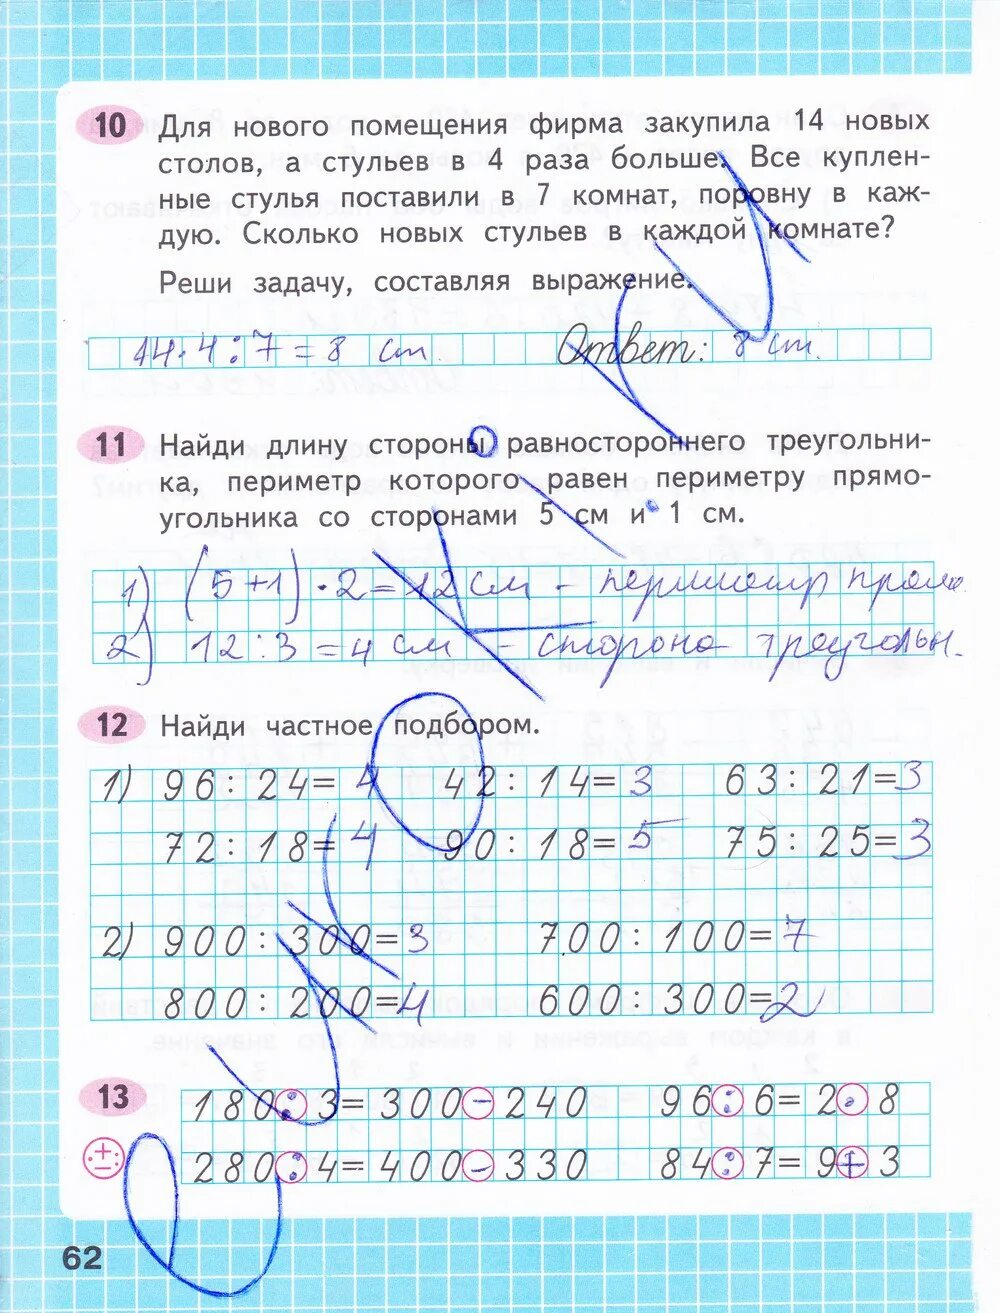 10 Для нового помещения фирма закупила 14 новых
столов, а стульев в 4 раза больше. Все куплен-
ные стулья поставили в 7 комнат, поровну в каж-
дую. Сколько новых стульев в каждой комнате?
Реши задачу, составляя выражение.
14·4:7=8 ст. Ответ: 8 ст.
11 Найди длину стороны равностороннего треугольни-
ка, периметр которого равен периметру прямо-
угольника со сторонами 5 см и 1 см.
1) (5+1)·2=12 см – периметр прямо
2) 12:3=4 см – сторона треугольн.
12 Найди частное подбором.
1) 96:24=4 42:14=3 63:21=3
72:18=4 90:18=5 75:25=3
2) 900:300=3 700:100=7
800:200=4 600:300=2
13 180:3=300-240 96:6=2·8
280:4=400-330 84:7=9+3
62